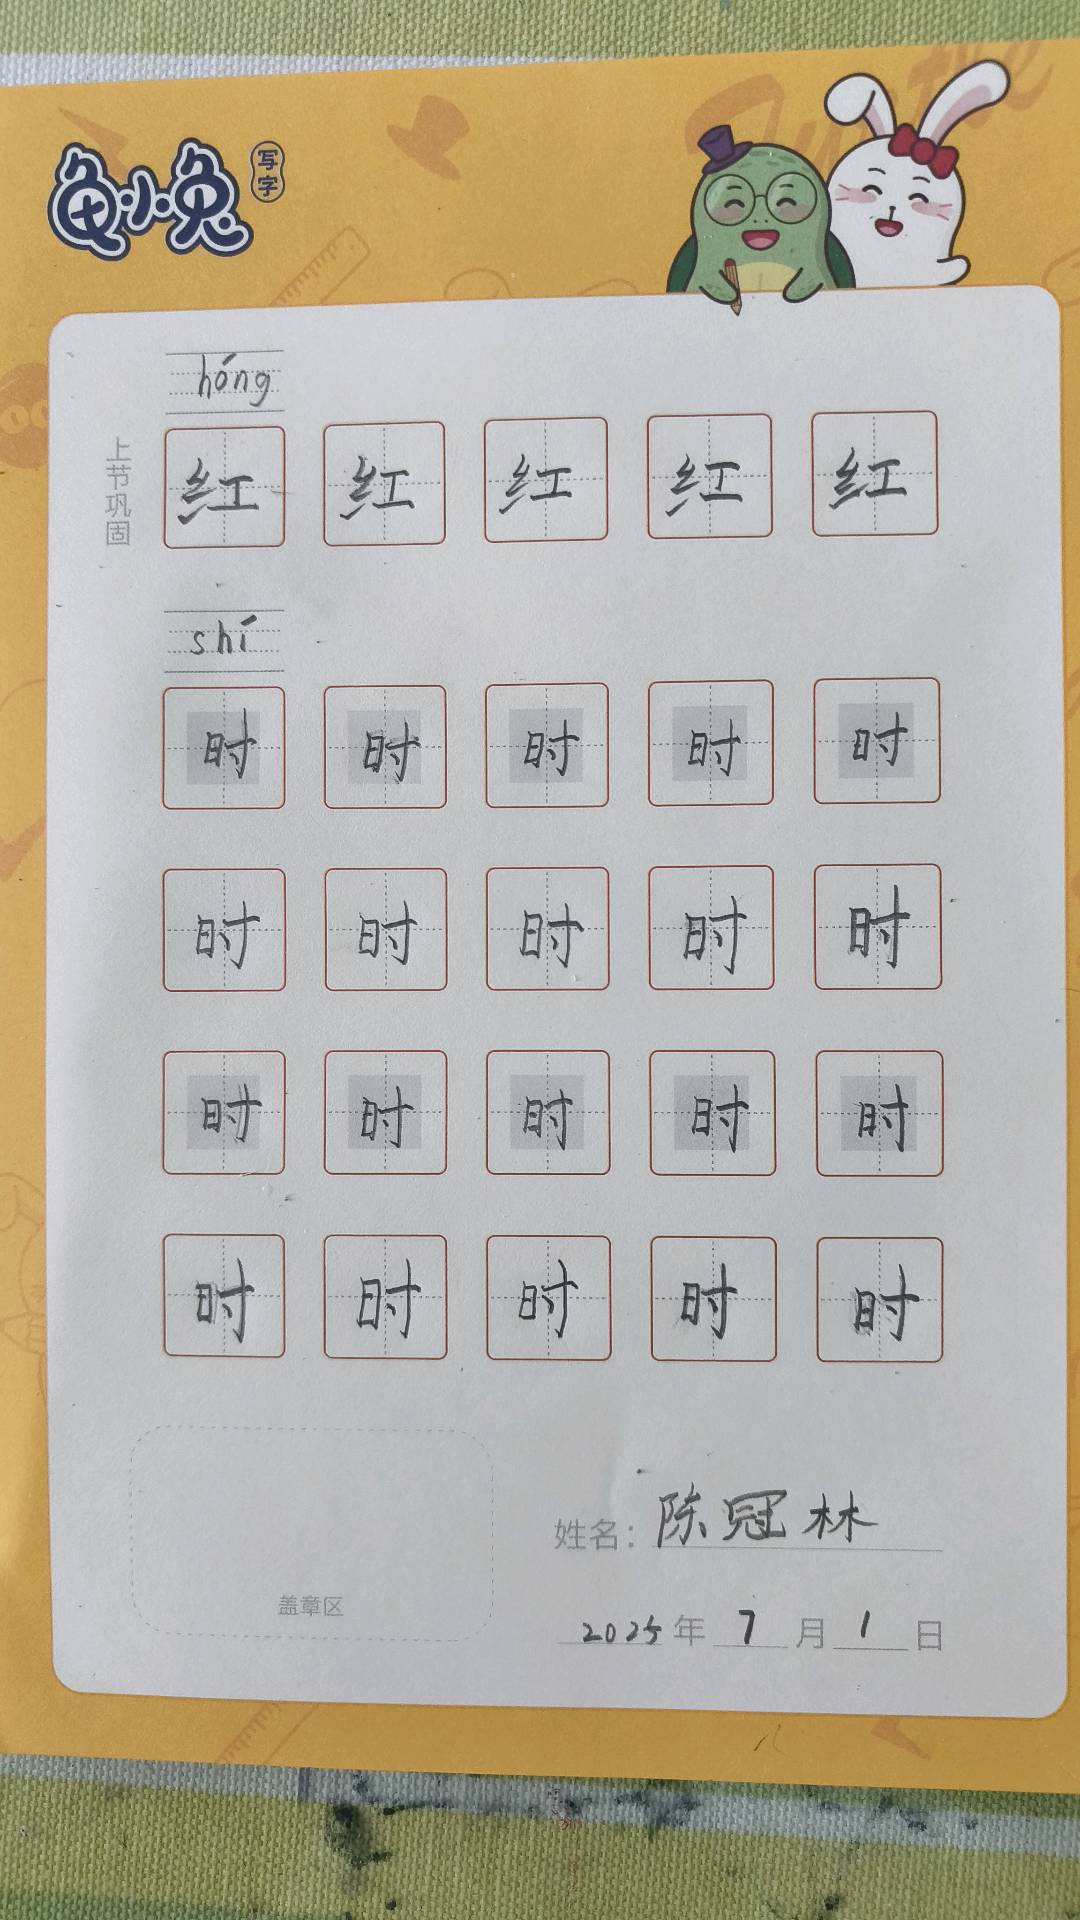 龟小兔 写字
hóng
上节巩固
红 红 红 红 红
shí
时 时 时 时 时
时 时 时 时 时
时 时 时 时 时
时 时 时 时 时
姓名：陈冠林
盖章区
2025年 7 月 1 日